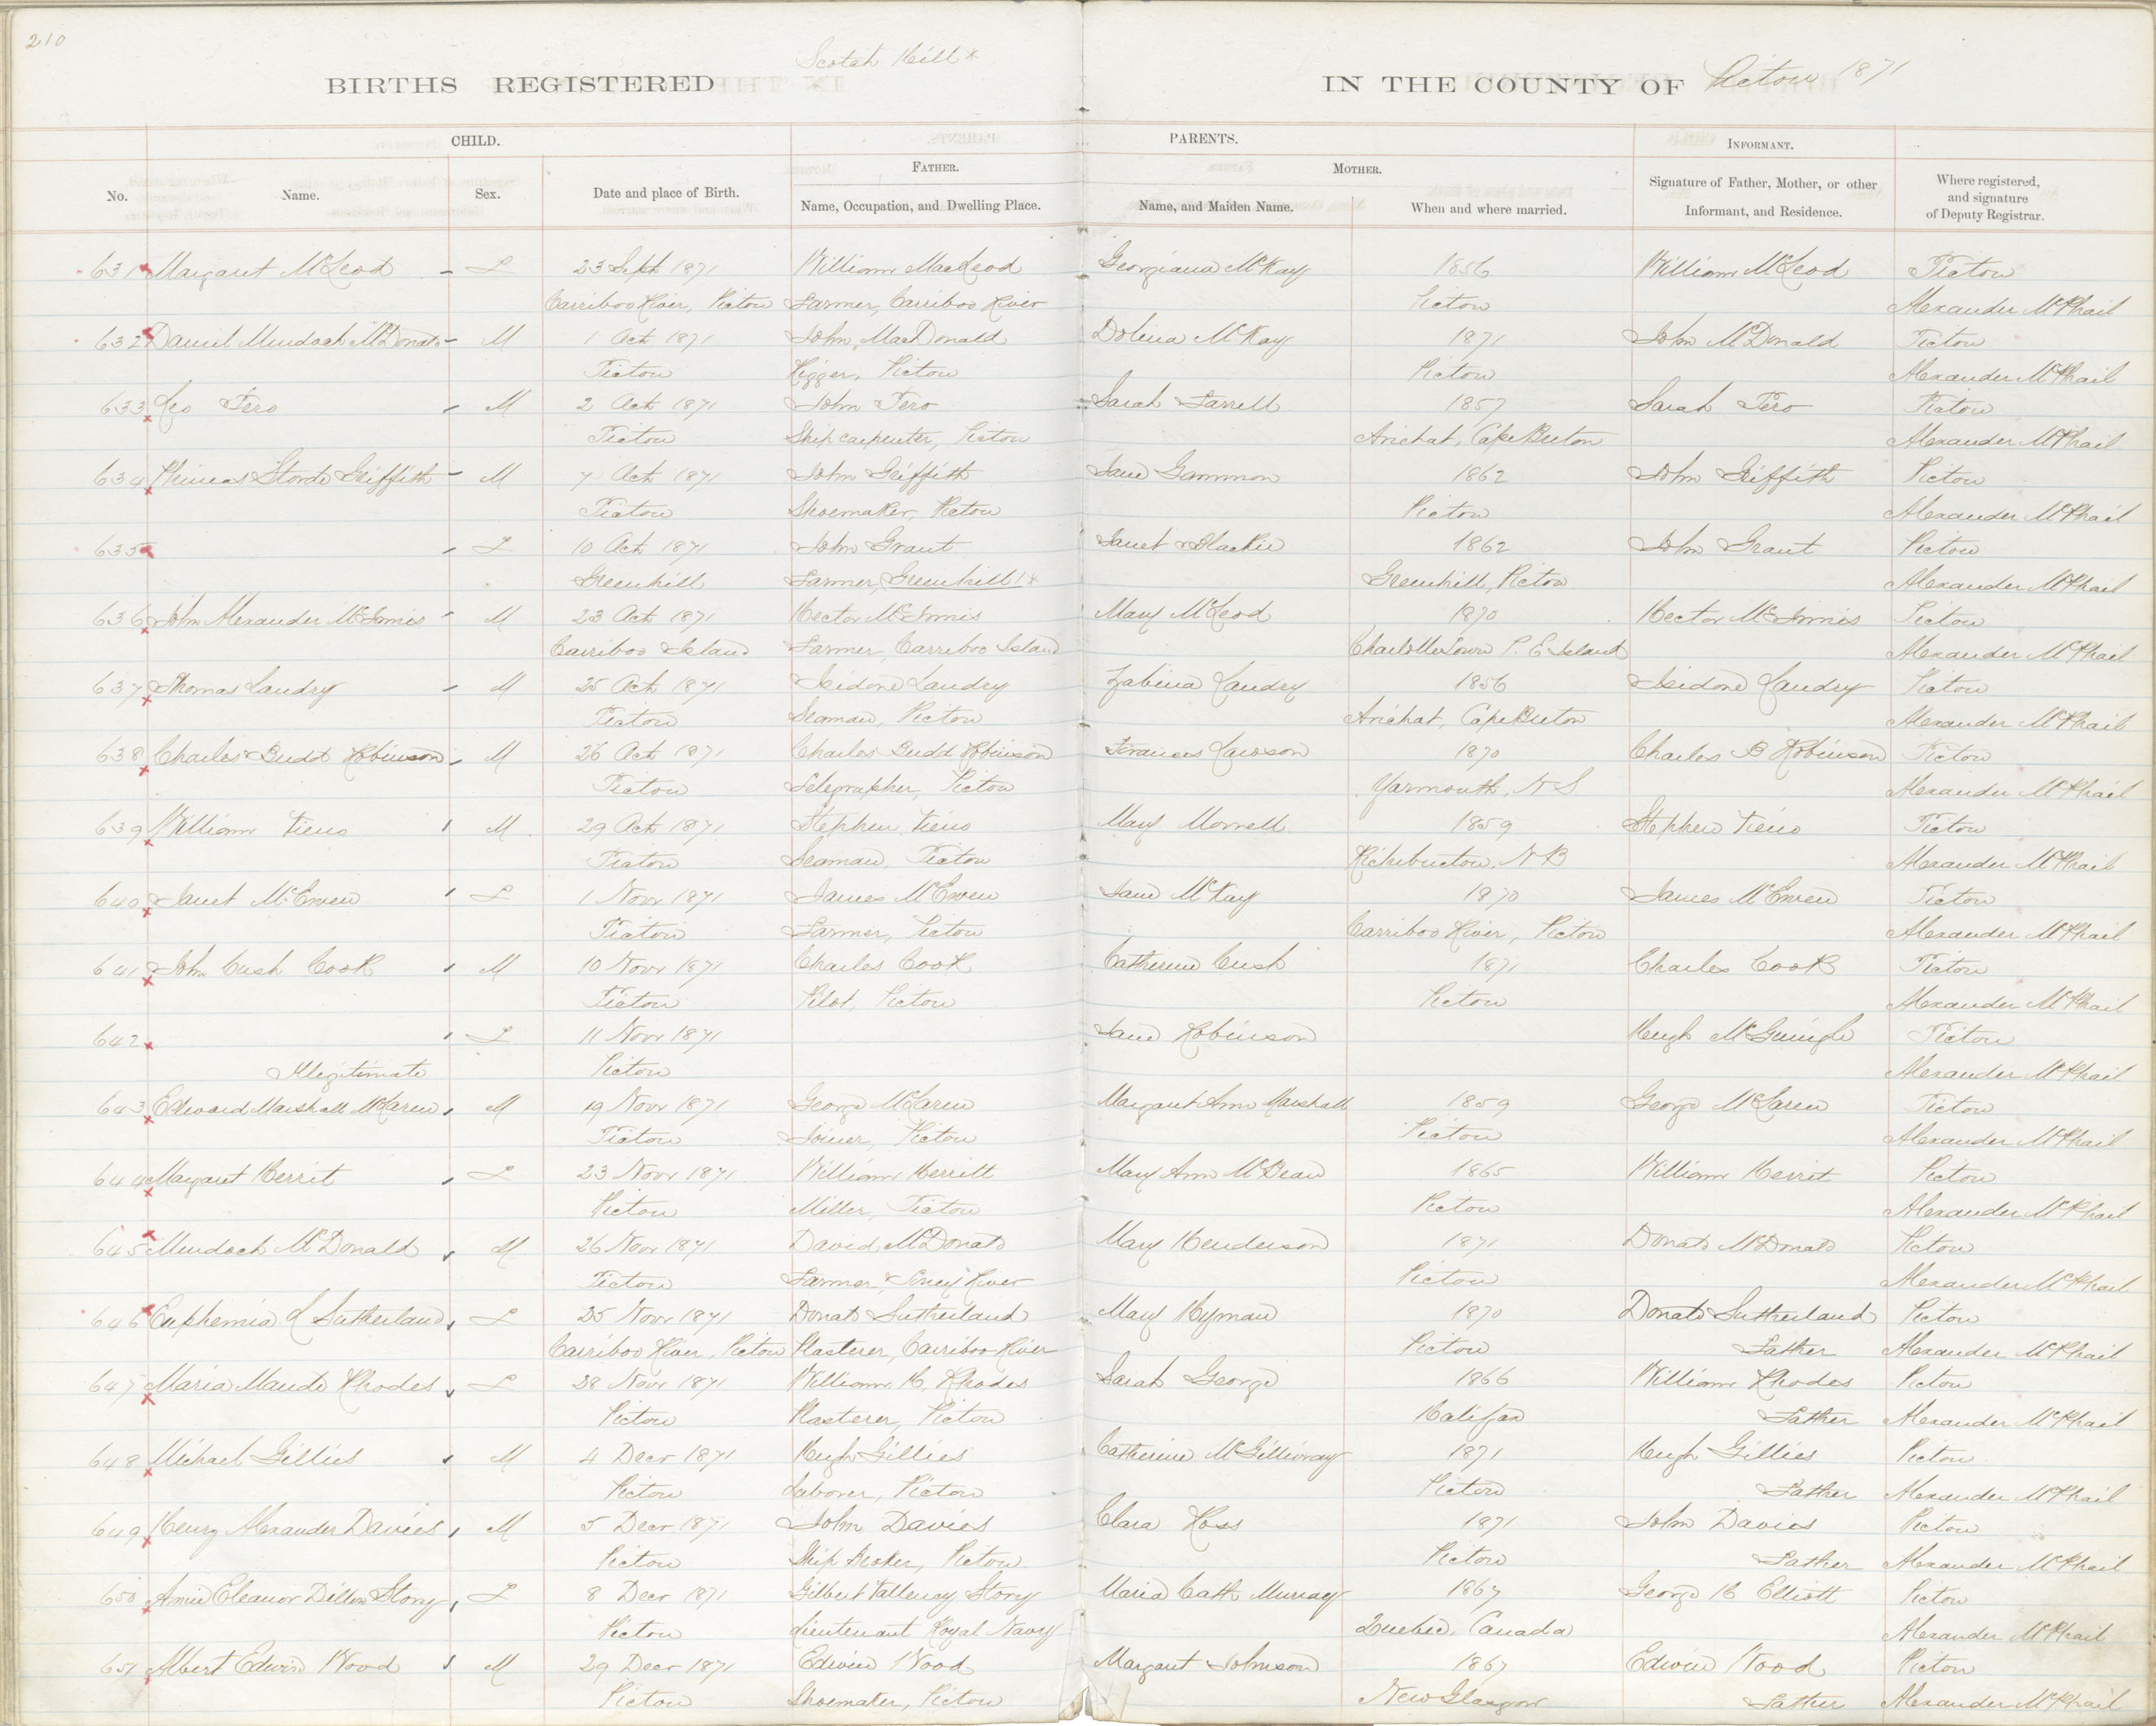 210
Scotch Hill *
BIRTHS REGISTERED IN THE COUNTY OF Pictou 1871
CHILD. PARENTS. INFORMANT.
FATHER. MOTHER.
No. Name. Sex. Date and place of Birth. Name, Occupation, and Dwelling Place. Name, and Maiden Name. When and where married. Signature of Father, Mother, or other Informant, and Residence. Where registered, and signature of Deputy Registrar.
631 Margaret McLeod F 23 Sept 1871 William MacLeod Georgiana McKay 1856 William McLeod Pictou
Carriboo River, Pictou Farmer, Carriboo River Pictou Alexander McPhail
632 Daniel Murdoch McDonald M 1 Oct 1871 John MacDonald Dolina McKay 1871 John McDonald Pictou
Pictou Rigger, Pictou Pictou Alexander McPhail
633 Leo Fero M 2 Oct 1871 John Fero Sarah Farrell 1857 Sarah Fero Pictou
Pictou Ship carpenter, Pictou Arichat, Cape Breton Alexander McPhail
634 Storde Griffith M 7 Oct 1871 John Griffith Jane Gammon 1862 John Griffith Pictou
Pictou Shoemaker, Pictou Pictou Alexander McPhail
635 F 10 Oct 1871 John Grant Janet Blackie 1862 John Grant Pictou
Greenhill Farmer, Greenhill * Greenhill, Pictou Alexander McPhail
636 John Alexander McInnis M 23 Oct 1871 Hector McInnis Mary McLeod 1870 Hector McInnis Pictou
Carriboo Island Farmer, Carriboo Island Charlottetown P. E. Island Alexander McPhail
637 Thomas Landry M 25 Oct 1871 Isidore Landry Zabina Landry 1856 Isidore Landry Pictou
Pictou Seaman, Pictou Arichat, Cape Breton Alexander McPhail
638 Charles Budd Robinson M 26 Oct 1871 Charles Budd Robinson Frances Lawson 1870 Charles B Robinson Pictou
Pictou Telegrapher, Pictou Yarmouth, N S Alexander McPhail
639 William M 29 Oct 1871 Stephen Mary Morrell 1859 Stephen Pictou
Pictou Seaman, Pictou Richibucton, N B Alexander McPhail
640 Janet McEwen F 1 Novr 1871 James McEwen Jane McKay 1870 James McEwen Pictou
Pictou Farmer, Pictou Carriboo River, Pictou Alexander McPhail
641 John Cush Cook M 10 Novr 1871 Charles Cook Catherine Cush 1871 Charles Cook Pictou
Pictou Pilot, Pictou Pictou Alexander McPhail
642 F 11 Novr 1871 Jane Robinson Hugh Pictou
Illegitimate Pictou Alexander McPhail
643 Edward Marshall McLaren M 19 Novr 1871 George McLaren Margaret Ann Marshall 1859 George McLaren Pictou
Pictou Joiner, Pictou Pictou Alexander McPhail
644 Margaret Herrit F 23 Novr 1871 William Herritt Mary Ann McBean 1865 William Herrit Pictou
Pictou Miller, Pictou Pictou Alexander McPhail
645 Murdoch McDonald M 26 Novr 1871 David McDonald Mary Henderson 1871 Donald McDonald Pictou
Pictou Farmer, River Pictou Alexander McPhail
646 Euphemia L Sutherland F 25 Novr 1871 Donald Sutherland Mary Hyman 1870 Donald Sutherland Pictou
Carriboo River, Pictou Plasterer, Carriboo River Pictou Father Alexander McPhail
647 Maria Maude Rhodes F 28 Novr 1871 William H, Rhodes Sarah George 1866 William Rhodes Pictou
Pictou Plasterer, Pictou Halifax Father Alexander McPhail
648 Michael Gillies M 4 Decr 1871 Hugh Gillies Catherine McGillivray 1871 Hugh Gillies Pictou
Pictou Laborer, Pictou Pictou Father Alexander McPhail
649 Henry Alexander Davies M 5 Decr 1871 John Davies Clara Ross 1871 John Davies Pictou
Pictou Ship Broker, Pictou Pictou Father Alexander McPhail
650 Amie Eleanor Dillon Story F 8 Decr 1871 Gilbert Story Maria Cath Murray 1867 George H Elliott Pictou
Pictou Lieutenant Royal Navy Quebec, Canada Alexander McPhail
651 Albert Edwin Wood M 29 Decr 1871 Edwin Wood Margaret Johnson 1867 Edwin Wood Pictou
Pictou Shoemaker, Pictou New Glasgow Father Alexander McPhail